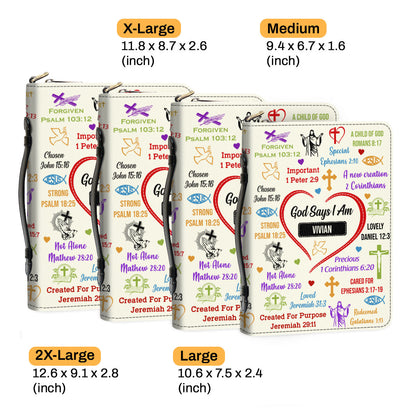 X-Large
11.8 x 8.7 x 2.6
(inch)
Medium
9.4 x 6.7 x 1.6
(inch)
FORGIVEN
PSALM 103:12
Important
1 Peter 2:9
Chosen
John 15:16
STRONG
PSALM 18:25
Not Alone
Mathew 28:20
Created For Purpose
Jeremiah 29:11
FORGIVEN
PSALM 103:12
Important
1 Peter
Chosen
John 15:16
STRONG
PSALM 18:25
Not Alone
Mathew 28:20
Created For
Jeremiah
FORGIVEN
PSALM 103:12
Important
1 Peter
Chosen
John 15:16
STRONG
PSALM 18:25
Not Alone
Mathew 28:20
Created For
Jeremiah
FORGIVEN
PSALM 103:12
A CHILD OF GOD
ROMANS 8:17
Special
Ephesians 2:10
Important
1 Peter 2:9
A new creation
2 Corinthians
Chosen
John 15:16
God Says I Am
VIVIAN
STRONG
PSALM 18:25
LOVELY
DANIEL 12:3
Precious
1 Corinthians 6:20
Not Alone
Mathew 28:20
CARED FOR
EPHESIANS 3:17-19
Loved
Jeremiah 31:3
Created For Purpose
Jeremiah 29:11
Redeemed
Galatians
2X-Large
12.6 x 9.1 x 2.8
(inch)
Large
10.6 x 7.5 x 2.4
(inch)